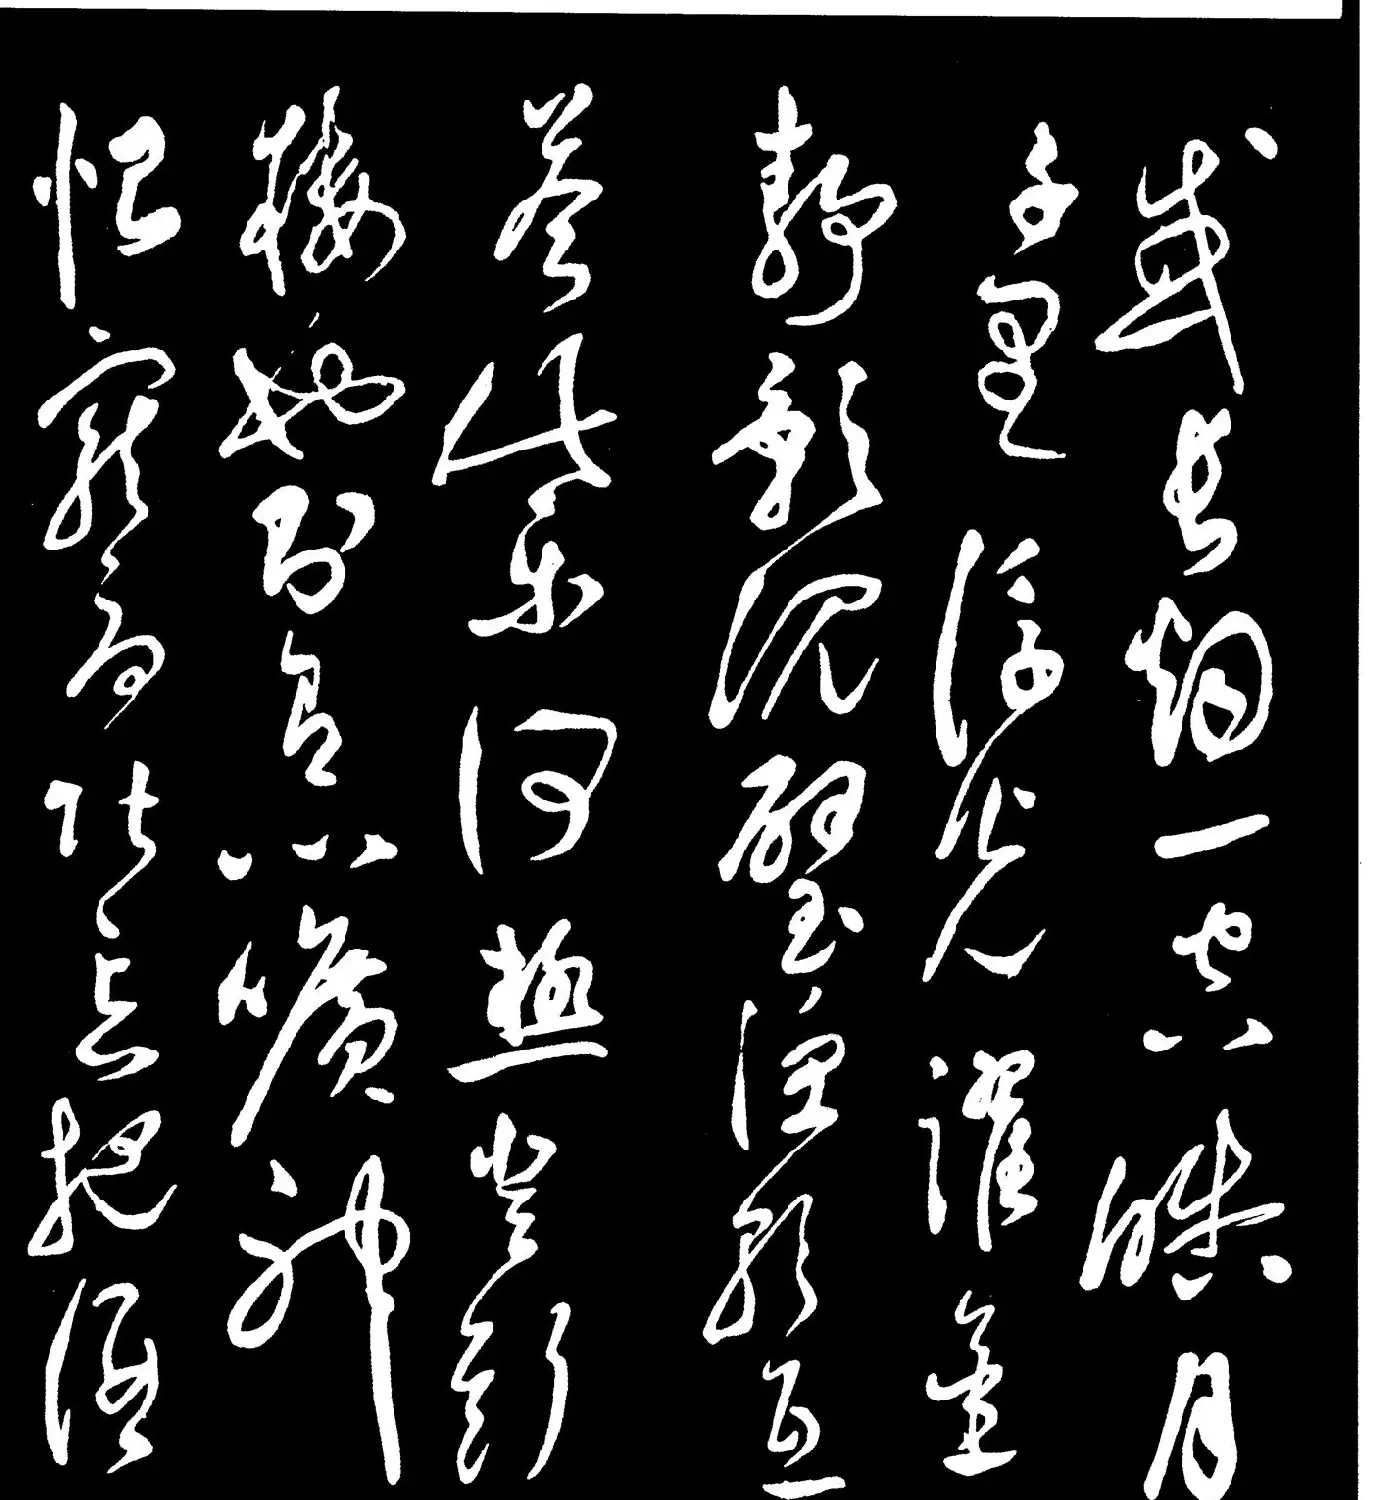 或長烟一空皓月
千里浮光躍金
靜影沉璧漁歌互
答此樂何極登斯
樓也則有心曠神
怡寵辱偕忘把酒